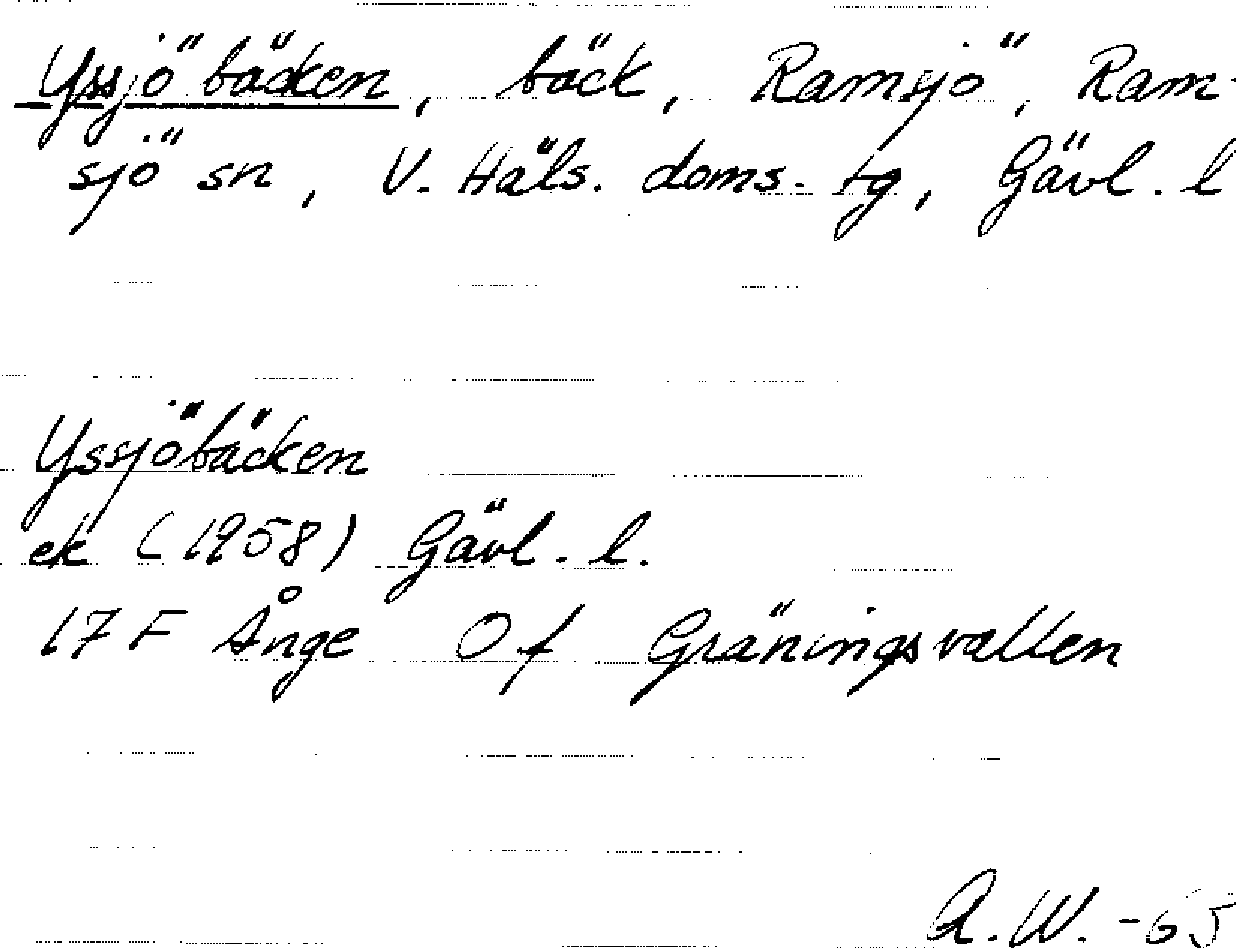 Yssjöbäcken, bäck, Ramsjö, Ram-
sjö sn, V. Häls. doms. tg, Gävl. l
Yssjöbäcken
ek (1958) Gävl. l.
17 F Ånge 0 f Gräningsvallen
A.W. -65